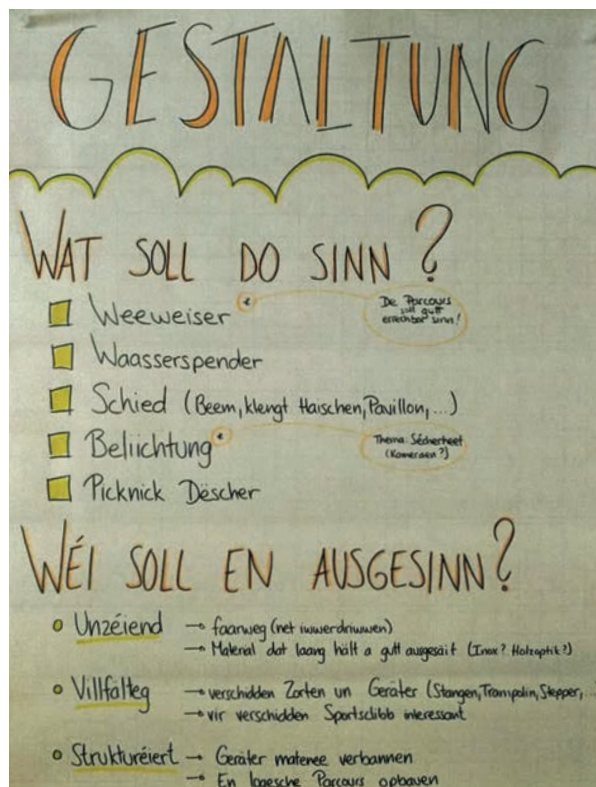 GESTALTUNG
WAT SOLL DO SINN?
Weeweiser *
De Parcours
soll gutt
erreechbar sinn!
Waasserspender
Schied (Beem, klengt Haischen, Pavillon, ...)
Beliichtung *
Thema: Sécherheet
(Kameraen?)
Picknick Dëscher
WÉI SOLL EN AUSGESINN?
Unzéiend → faarweg (net iwwerdriwwen)
→ Material dat laang hält a gutt ausgesäit (Inox? Holzoptik?)
Villfälteg → verschidden Zorten un Geräter (Stangen, Trampolin, Stepper, ...
→ vir verschidden Sportsclibb interessant
Struktureiert → Geräter mateneen verbannen
→ En logesche Parcours opbauen